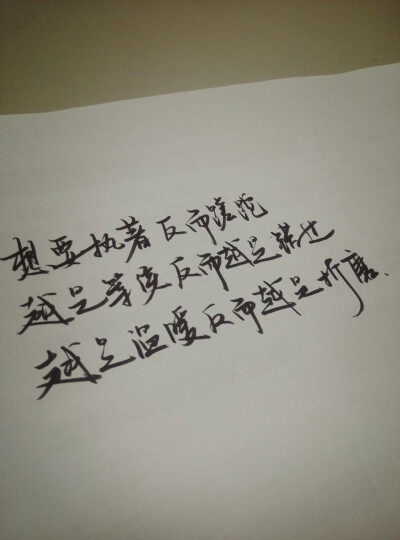 想要执著反而蹉跎
越是等反而越是错过
越是温暖反而越是折磨.